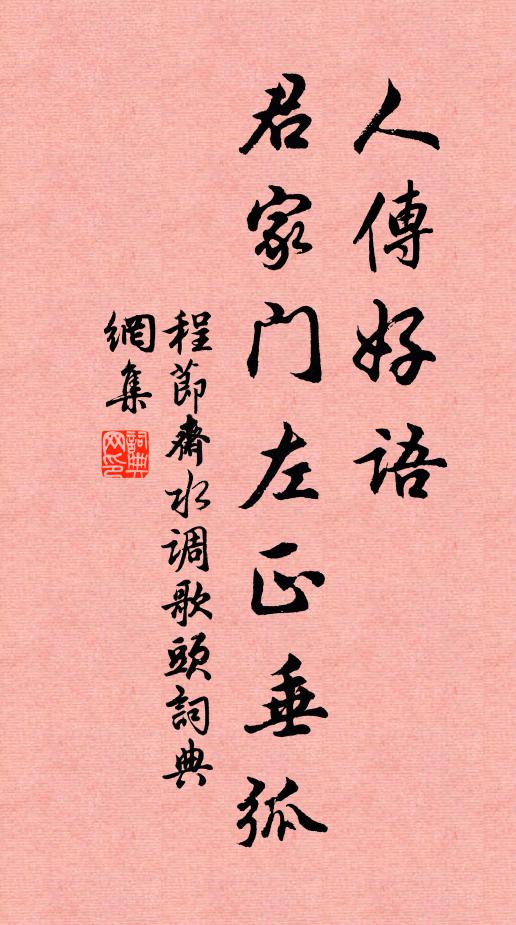 人傳好語
君家門左正垂弧
程節齋水调歌頭詞典
網集
詞典
网印